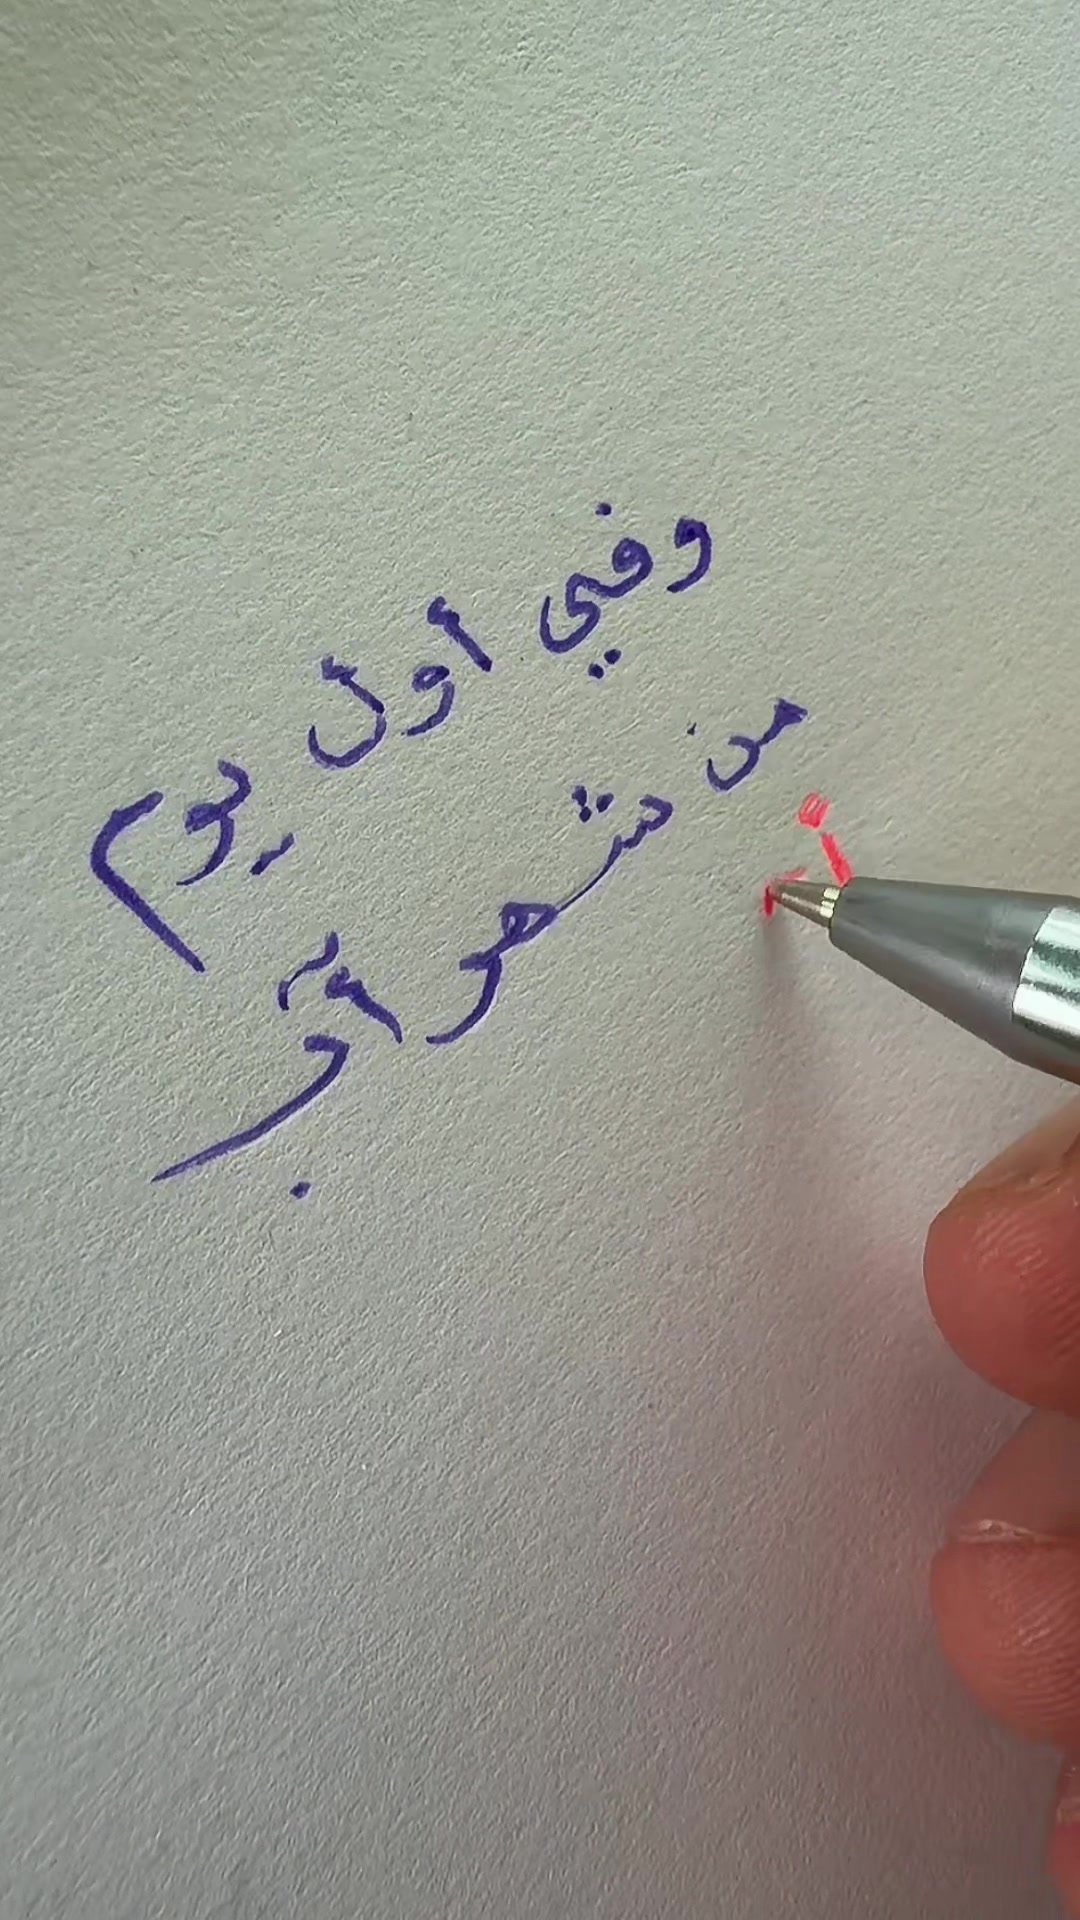 وفي أول يوم
من شهر آب